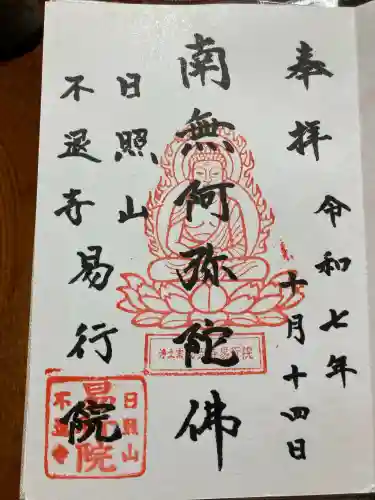 奉拝
令和七年
十月十四日
南無阿弥陀佛
日照山
不退寺易行院
日照山
易行院
不退寺